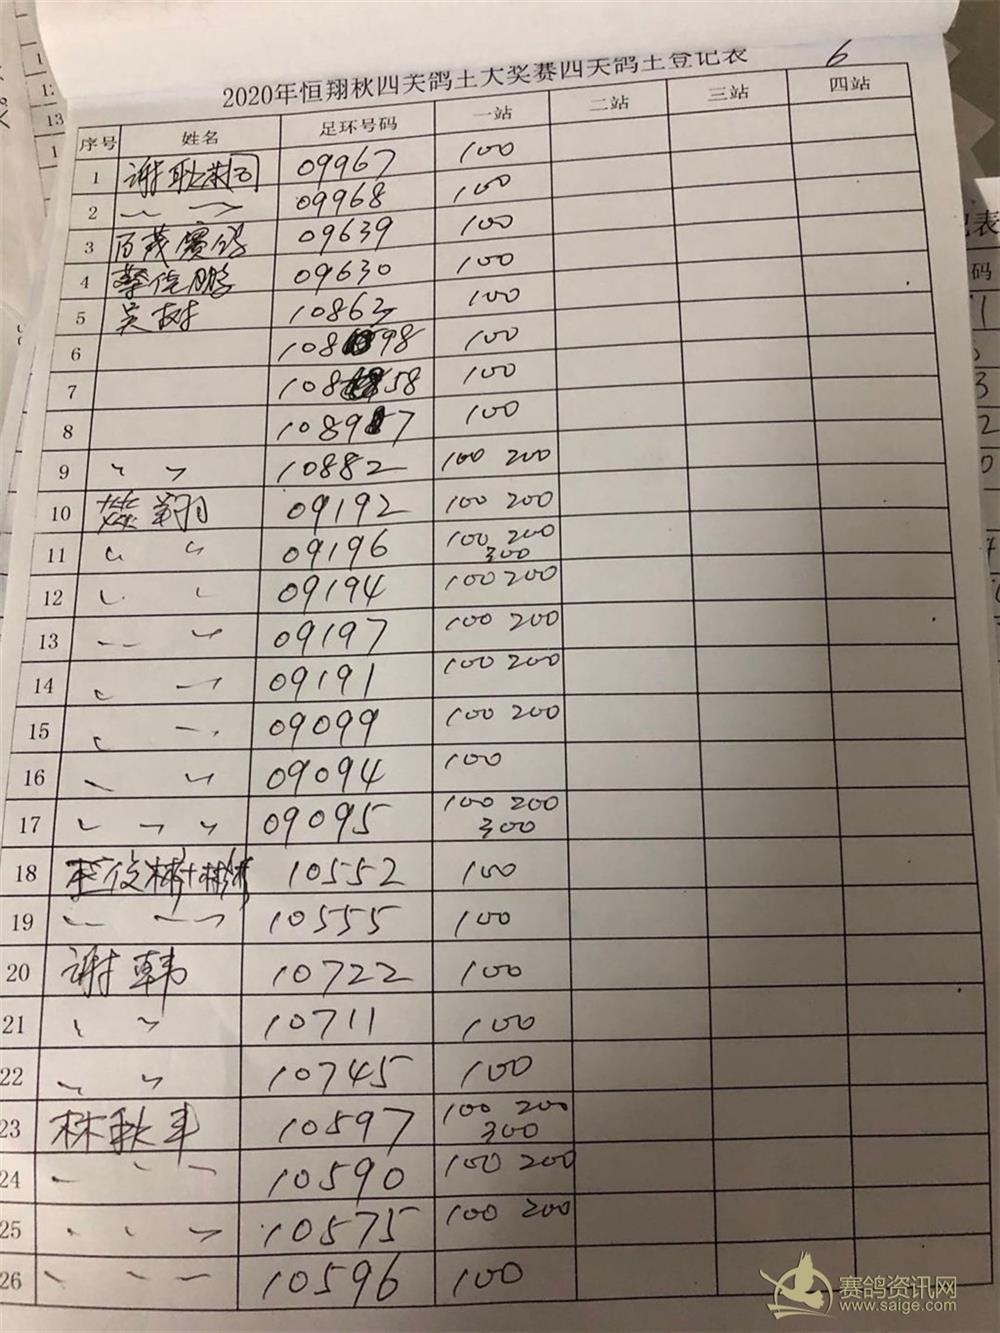 6
2020年恒翔秋四关鸽王大奖赛四关鸽王登记表
序号 姓名 足环号码 一站 二站 三站 四站
1 谢耿 09967 100
2 〃 〃 09968 100
3 百茂赛鸽 09639 100
4 蔡佳鹏 09630 100
5 吴树 10863 100
6 108 98 100
7 108 58 100
8 10897 100
9 〃 〃 10882 100 200
10 翔 09192 100 200
11 〃 〃 09196 100 200
300
12 〃 〃 09194 100 200
13 〃 〃 09197 100 200
14 〃 〃 09191 100 200
15 〃 〃 09099 100 200
16 〃 〃 09094 100
17 〃 〃 〃 09095 100 200
300
18 10552 100
19 〃 〃 10555 100
20 谢韩 10722 100
21 〃 〃 10711 100
22 〃 〃 10745 100
23 林秋丰 10597 100 200
300
24 〃 〃 〃 10590 100 200
25 〃 〃 〃 10575 100 200
26 〃 〃 〃 10596 100
赛鸽资讯网
www.saige.com
记表
码